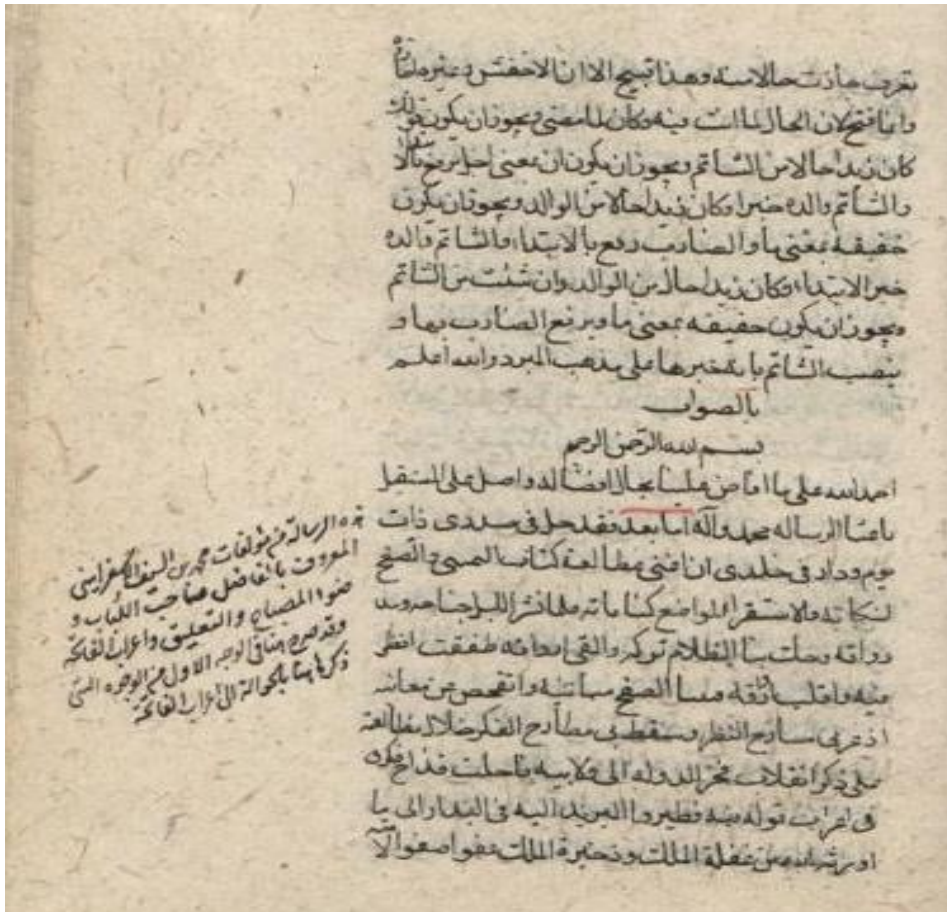 تعرف جاءت حالا منه وهذا قبيح الا ان الاخفش وغيره اجازه
وانما قبح لان الحال لما انت فيه وكان لما مضى ويجوز ان يكون قولك
كان زيدا حالا من الشاتم ويجوز ان يكون ان بمعنى
والشاتم والده خبرا وكان زيدا حالا من الوالد ويجوز ان يكون
خفيفة بمعنى ما والضارب رفع بالابتداء والشاتم والده
خبر الابتداء وكان زيدا حال من الوالد وان شئت من الشاتم
ويجوز ان يكون خفيفه بمعنى ما ويرتفع الضارب بها و
ينصب الشاتم بانه خبرها على مذهب المبرد والله اعلم
بالصواب
بسم الله الرحمن الرحيم
احمد الله على ما افاض علينا سجال افضاله واصلى على المستقل
باعباء الرساله محمد وآله اما بعد فقد حل فى خلدى ذات
يوم ودار فى خلدى ان افنى مطالعة كتاب اليمينى والتصفح
لنكاته والاستقراء لمواضع كناياته فلما نشر الليل جناحه ومد
رواقه وحلت بنا الظلام توكه والقى ارواقه طفقت انظر
فيه واقلب
اذ مر بى مسارح النظر وسقط بى مطارح الفكر خلال مطالعة
على ذكر انقلاب فخر الدوله الى ولايته فاجلت قداح فكره
فى اعراب قوله منه فطيروا البريد اليه فى البدار الى ما
اورثه الله من عقلة الملك وذخيرة الملك عفوا صفوا لا
هذه الرسالة من مؤلفات محمد بن السيف الاسفراينى
المعروف بالفاضل صاحب اللباب و
ضوء المصباح والتعليق واعراب الفاتحة
وقد صرح هنا فى الوجه الاول من الوجوه التى
ذكرها هنا بالحوالة الى اعراب الفاتحة